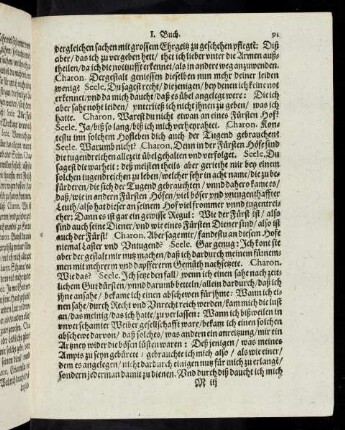 I. Buch. 91
dergleichen sachen mit grossem Ehrgeitz zu geschehen pfleget: Diß
aber/ das ich zu vergeben hett/ thet ich lieber vnter die Armen auß-
theilen/ da ich die notturfft erkennet/ als in andere weg anzuwenden.
Charon. Dergestalt geniessen dieselben nun mehr deiner leiden
wenig? Seele. Du sagest recht/ diejenigen/ bey denen ich keine not
erkennet/ vnd da mich daucht/ daß es übel angelegt were: Die ich
aber sahe noht leiden/ vnterließ ich nicht ihnen zu geben/ was ich
hatte. Charon. Warest du nicht etwan an eines Fürsten Hof?
Seele. Ja/ biß so lang/ biß ich mich verheyrahtet. Charon. Kon-
test du inn solchem Hofleben dich auch der Tugend gebrauchen?
Seele. Warumb nicht? Charon. Dann in der Fürsten Höfe sind
die tugendreichen allezeit übel gehalten vnd verfolget. Seele. Du
sagest die warheit: deß meisten theils aber geriethe mir bey einem
solchen
zu leben/ welcher sehr in acht name/ die zu be-
fürdern/ die sich der Tugend gebrauchten/ vnnd dahero kame es/
daß/ wie in andern Fürsten Höfen/ viel böser vnd vntugenthaffter
Leuth/ also hat dieser an seinem Hof viel frommer vnnd tugentrei-
cher: Dann es ist gar ein gewisse Regul: Wie der Fürst ist/ also
sind auch seine Diener/ vnd wie eines Fürsten Diener sind/ also ist
auch der Fürst. Charon. Aber sage mir/ fandest u an diesem Hofe
niemal Laster vnd Vntugend? Seele. Gar genug: Ich konte sie
aber der gestalt mir nutz machen/ daß ich dardurch meinem fürnem-
men mit mehrerm vnd dapfferem Gemüth nachsetzete. Charon.
Wie das? Seele. Ich setze den fall/ wenn ich einen sahe nach zeit-
lichem Gut dürsten/ vnnd darumb betteln/ allein dardurch/ daß ich
ihne ansahe/ bekame ich einen abschewen für ihme: Wann ich ei-
nen sahe/ durch Recht vnd Vnrecht reich werden/ kam mich die lust
an/ das meinig/ das ich hatte/ zu verlassen: Wann ich bißweilen in
vnverschamter Weiber gesellschafft ware/ bekam ich einen solchen
abschew darvon/ daß solches/ was andern ein anreitzung/ mir ein
Artzney wider die bösen lüsten waren: Deß jenigen/ was meines
Ampts zu seyn gebürete/ gebrauchte ich mich also/ als wie einer/
dem es angelegen/ nicht dardurch einigen nutz für mich zu erlangē/
sondern jederman damit zu dienen. Vnd durch diß daucht ich mich
M iij